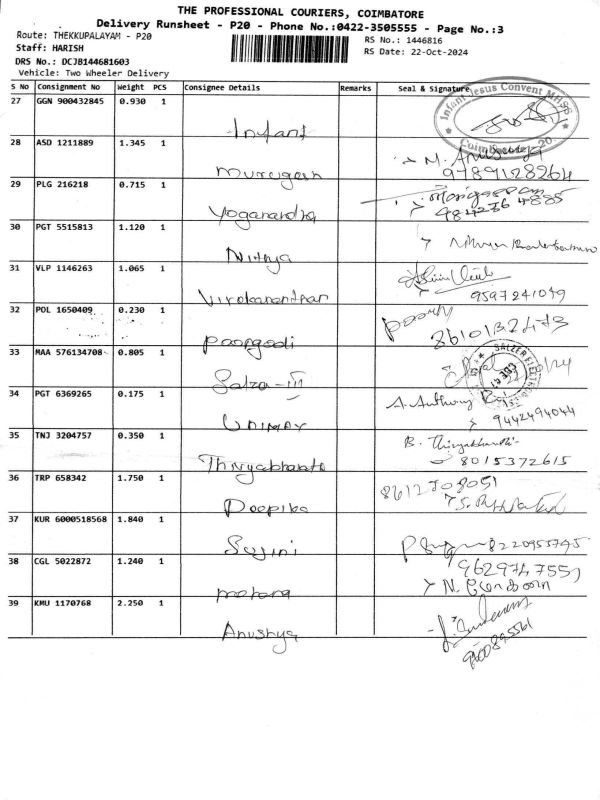 THE PROFESSIONAL COURIERS, COIMBATORE
Delivery Runsheet - P20 - Phone No.:0422-3505555 - Page No.:3
Route: THEKKUPALAYAM - P20
RS No.: 1446816
Staff: HARISH
RS Date: 22-Oct-2024
DRS No.: DCJB144681603
Vehicle: Two Wheeler Delivery
S No Consignment No Weight PCS Consignee Details Remarks Seal & Signature
Infant Jesus Convent MHSS
Coimbatore 20.
27 GGN 900432845 0.930 1
Infant
28 ASD 1211889 1.345 1
Murugesh
9789128264
29 PLG 216218 0.715 1
Yoganandha
9842364885
30 PGT 5515813 1.120 1
Nithya
31 VLP 1146263 1.065 1
9597241049
32 POL 1650409 0.230 1
Poongodi
8610132473
33 MAA 576134708 0.805 1
Salza-III
SALZER ELECTRONICS
34 PGT 6369265 0.175 1
A. Anthony
9442494044
UDIMAY
35 TNJ 3204757 0.350 1
B. Thivyabharathi
8015372615
Thivyabharathi
36 TRP 658342 1.750 1
8612708051
Deepika
37 KUR 6000518568 1.840 1
8220955745
Sujini
38 CGL 5022872 1.240 1
9629747559
39 KMU 1170768 2.250 1
Anushya